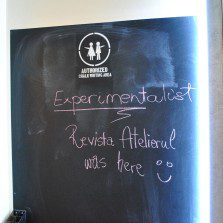 AUTHORIZED
CHALK WRITING AREA
Experimentalist
Revista Atelierul
was here